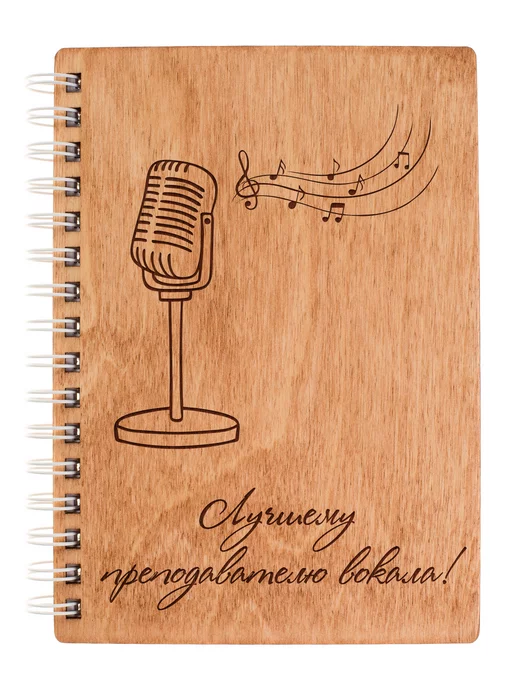 Лучшему
преподавателю вокала!